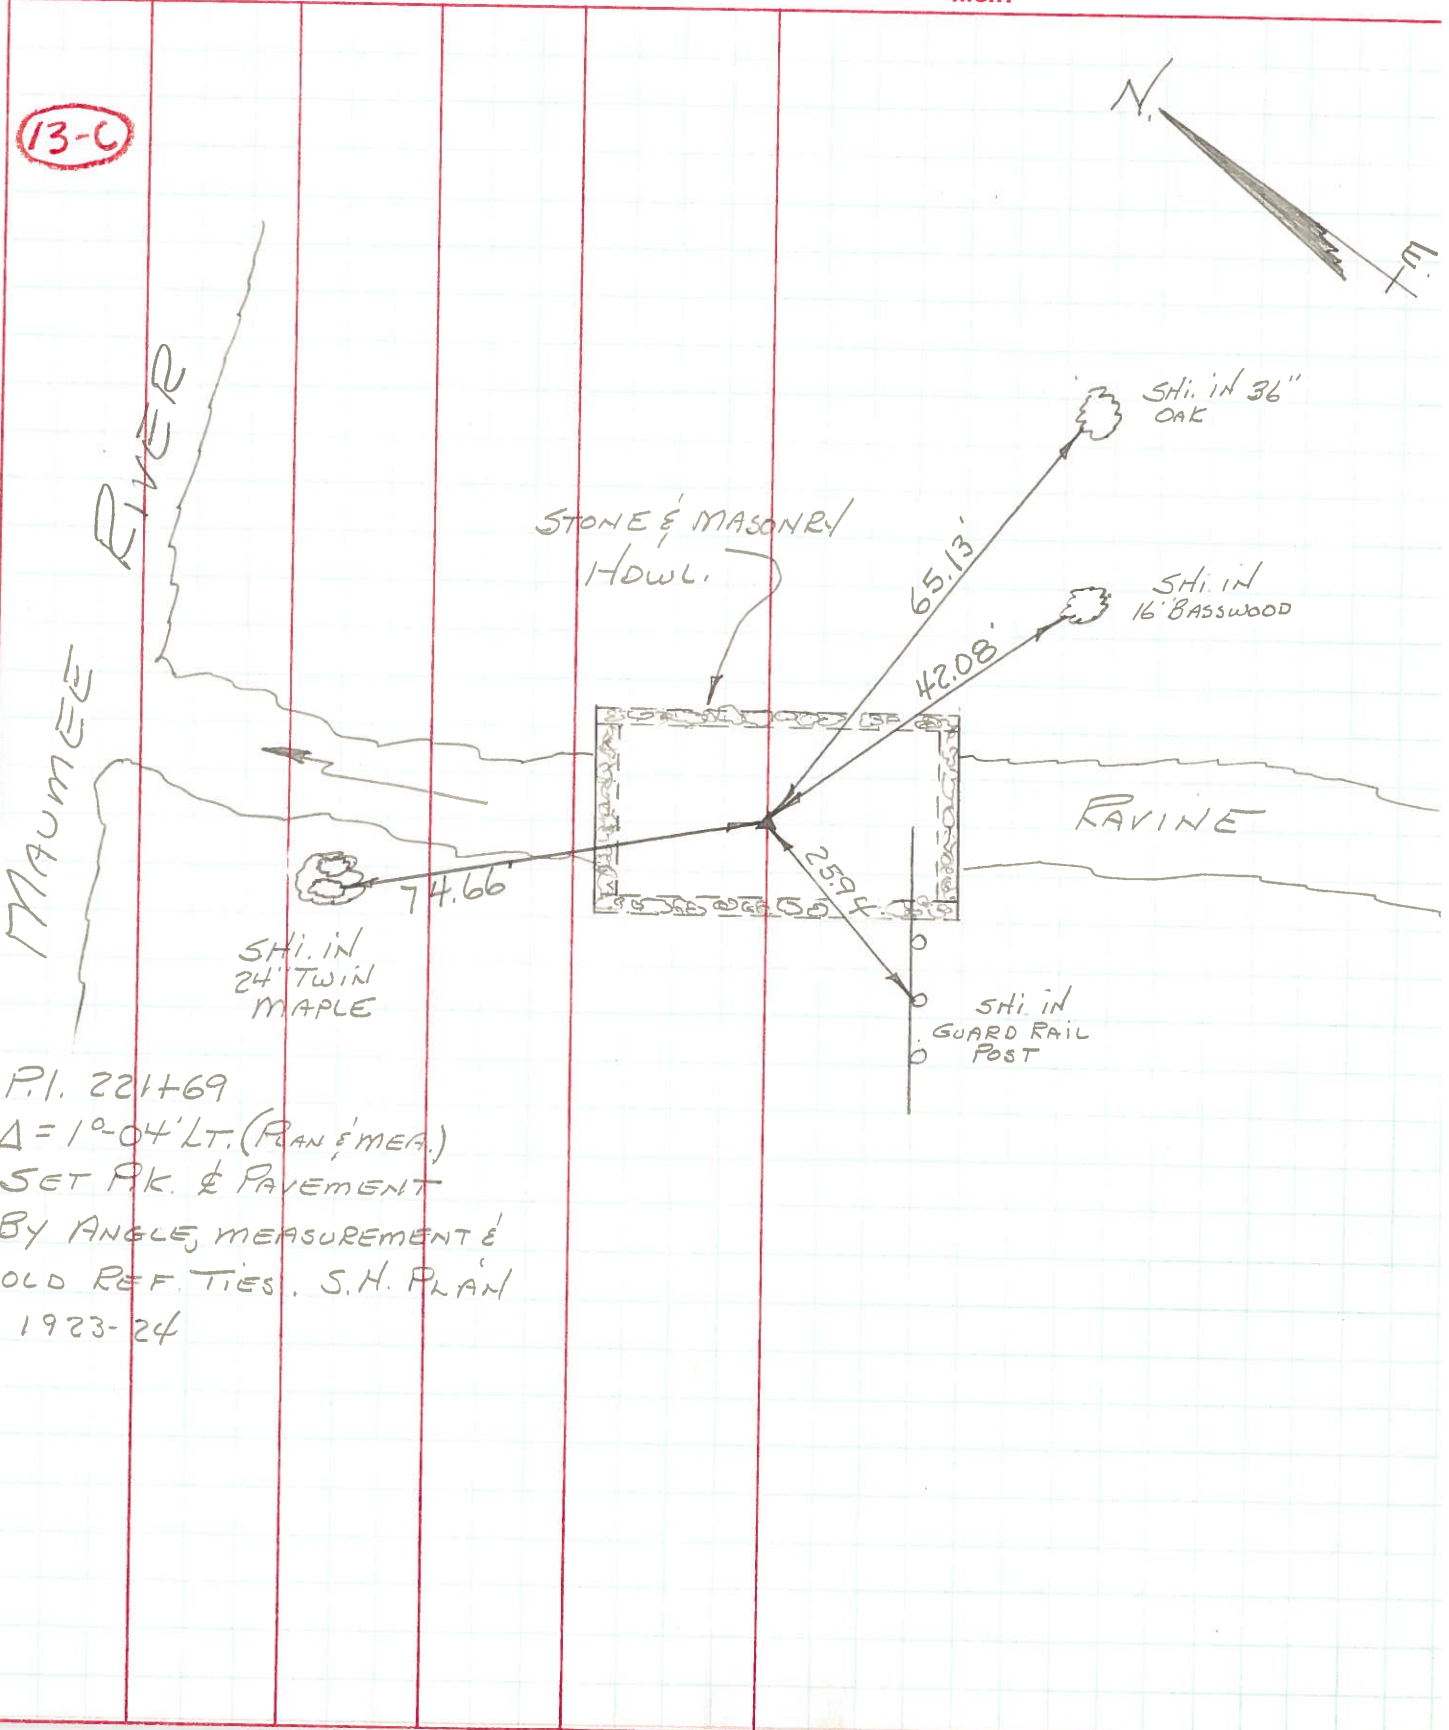 13-C
N.
E.
RIVER
MAUMEE
SHI. IN 36"
OAK
STONE & MASONRY
HDWL.
65.13'
SHI. IN
16" BASSWOOD
42.08'
RAVINE
74.66'
25.94
SHI. IN
24" TWIN
MAPLE
SHI. IN
GUARD RAIL
POST
P.I. 221+69
Δ = 1°-04' LT. (PLAN & MEA.)
SET P.K. ₵ PAVEMENT
BY ANGLE, MEASUREMENT &
OLD REF. TIES. S.H. PLAN
1923-24